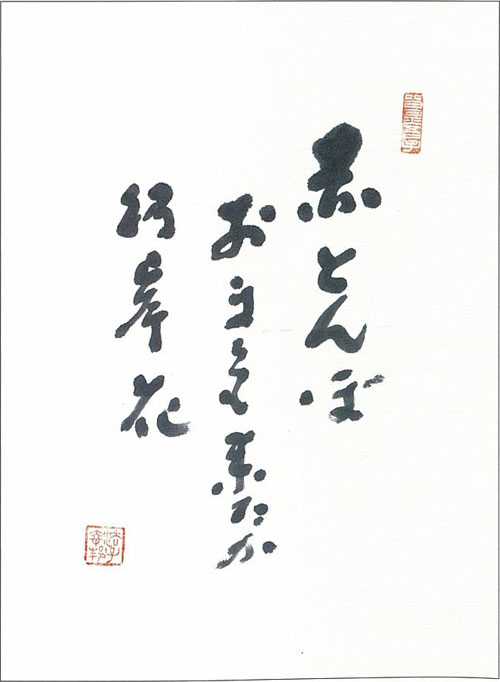 赤とんぼ
お主も来たか
彼岸花